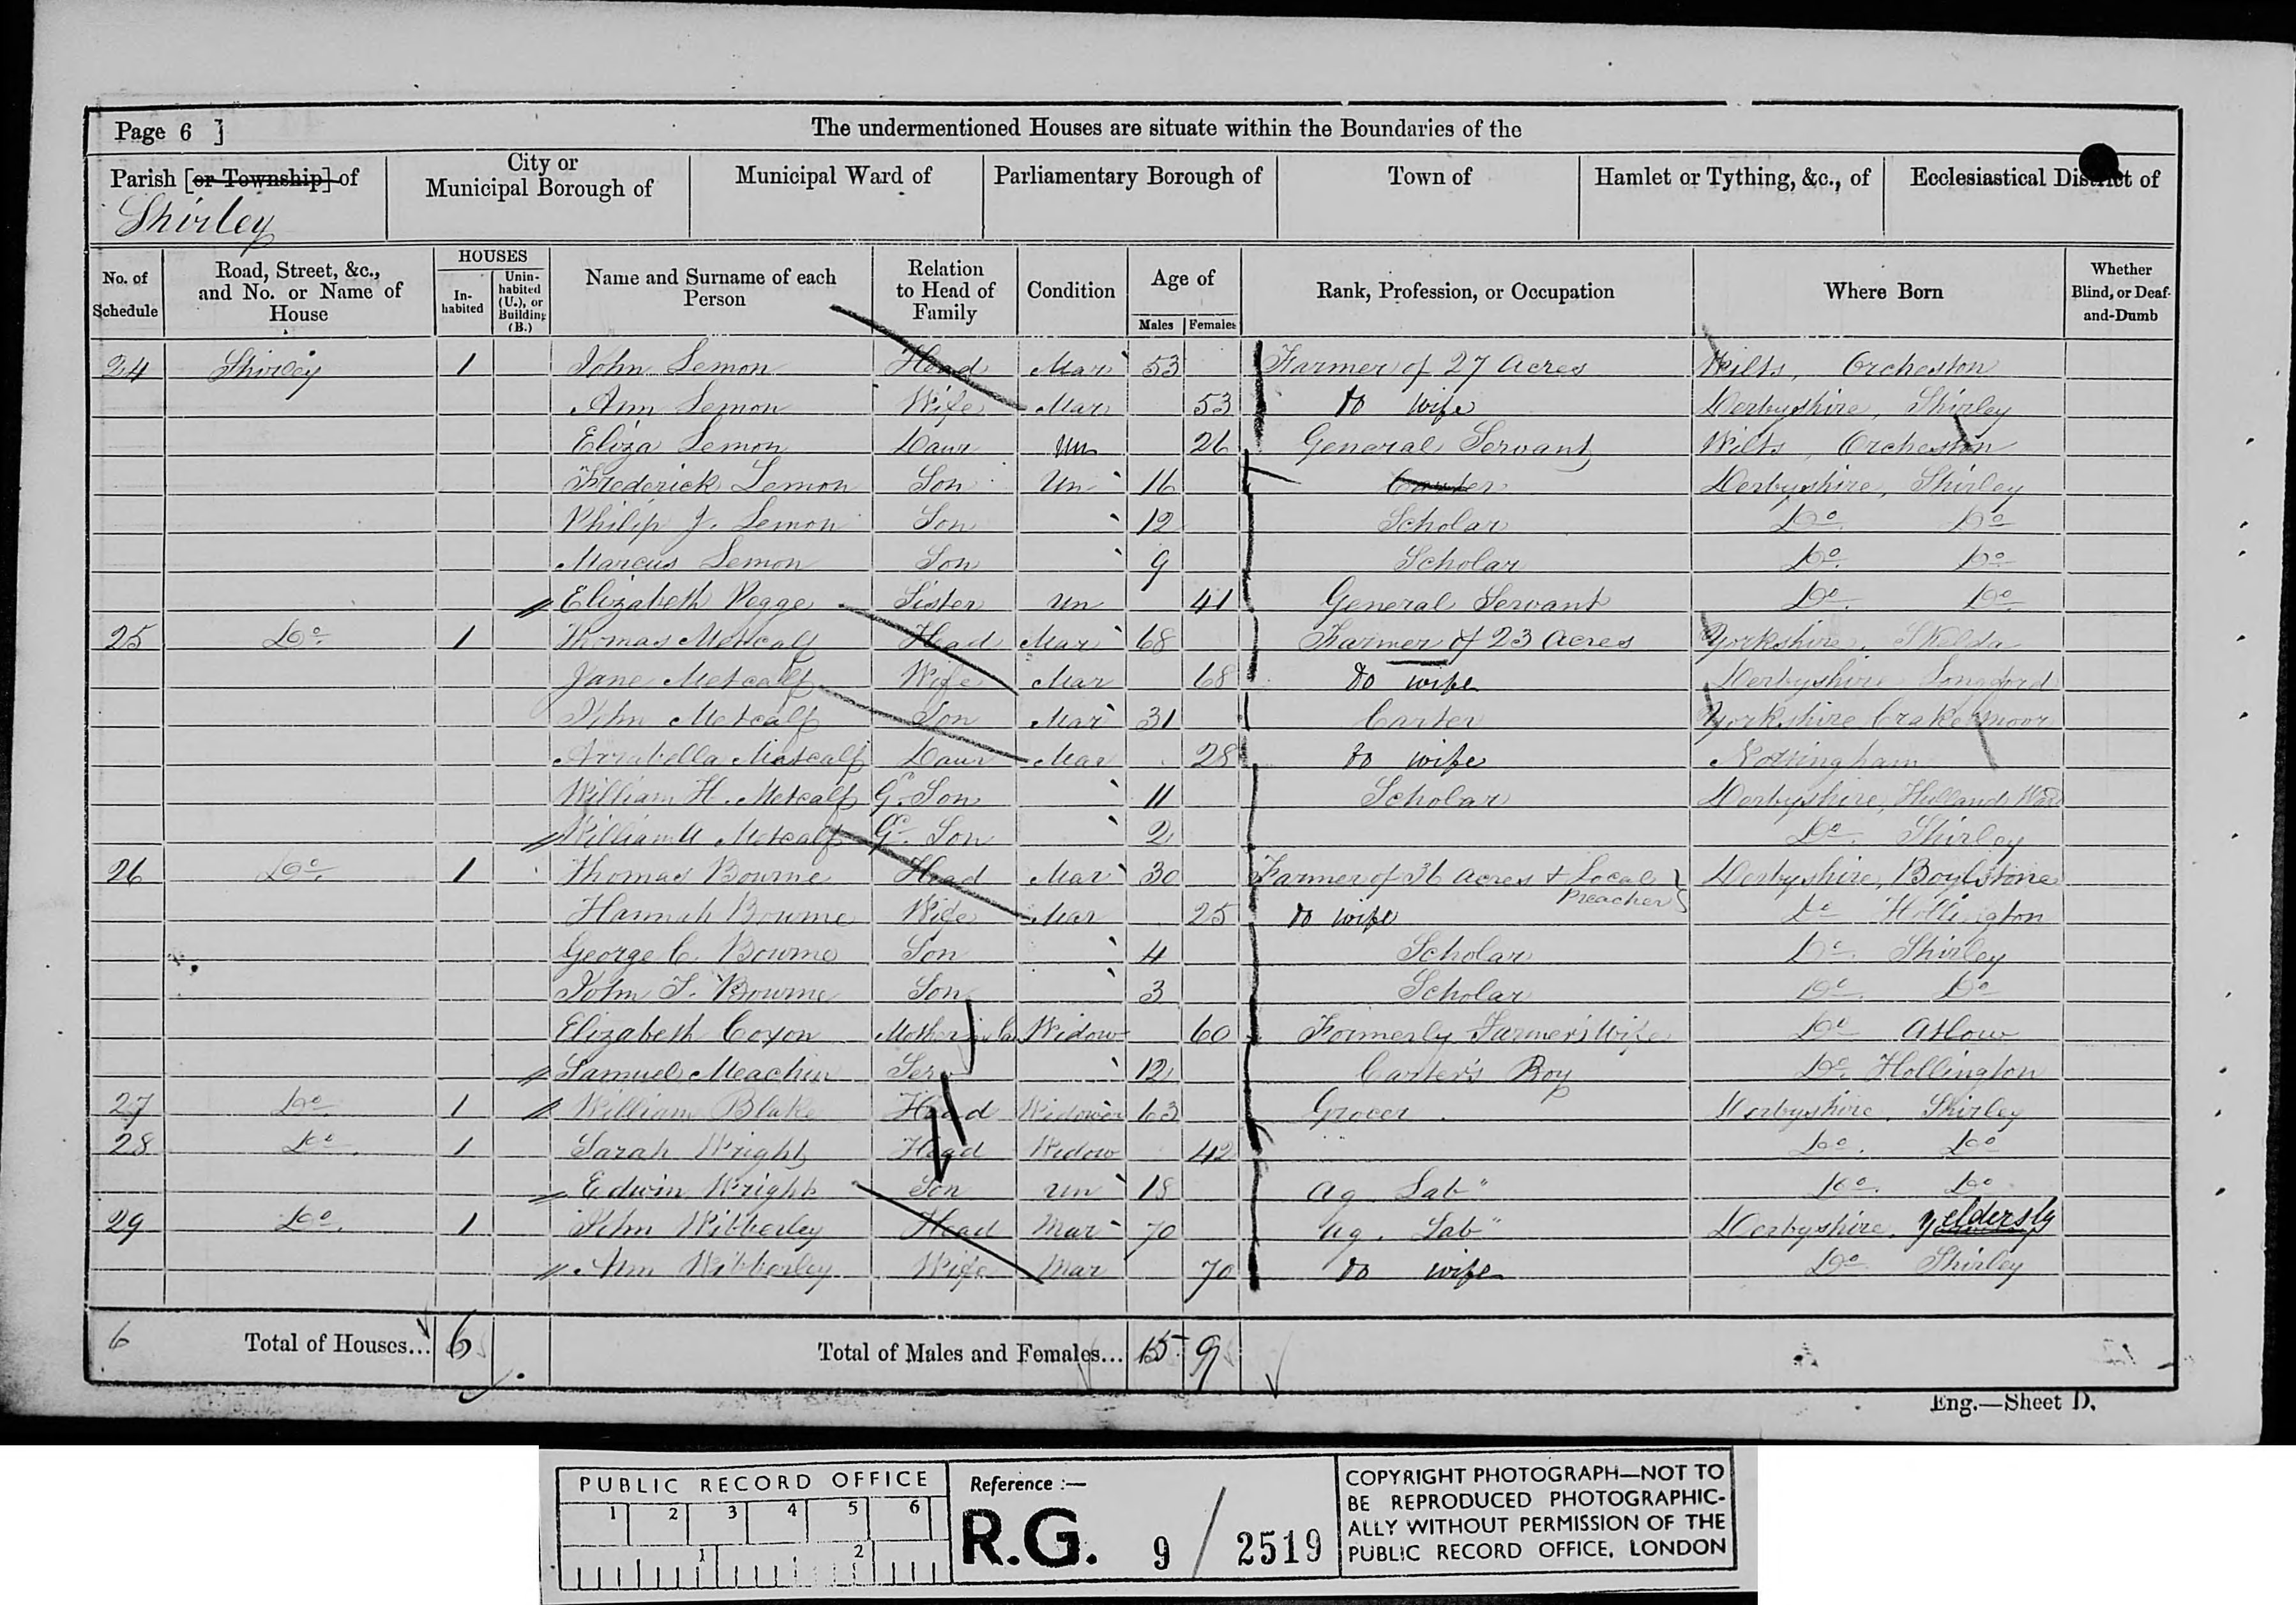 Page 6 ]
The undermentioned Houses are situate within the Boundaries of the
Parish [or Township] of Shirley
City or Municipal Borough of
Municipal Ward of
Parliamentary Borough of
Town of
Hamlet or Tything, &c., of
Ecclesiastical District of
No. of Schedule
Road, Street, &c., and No. or Name of House
HOUSES
In-habited
Unin-habited (U.), or Building (B.)
Name and Surname of each Person
Relation to Head of Family
Condition
Age of
Males
Females
Rank, Profession, or Occupation
Where Born
Whether Blind, or Deaf-and-Dumb
24 Shirley 1 John Lemon Head Mar 53 Farmer of 27 Acres Wilts, Orcheston
Ann Lemon Wife Mar 53 Do wife Derbyshire, Shirley
Eliza Lemon Daur Un 26 General Servant Wilts, Orcheston
Frederick Lemon Son Un 16 Carter Derbyshire, Shirley
Philip J. Lemon Son 12 Scholar Do Do
Marcus Lemon Son 9 Scholar Do. Do
Elizabeth Pegge Sister Un 41 General Servant Do. Do.
25 Do 1 Thomas Metcalf Head Mar 68 Farmer of 23 Acres Yorkshire,
Jane Metcalf Wife Mar 68 Do wife Derbyshire Longford
John Metcalf Son Mar 31 Carter Yorkshire
Arrabella Metcalf Daur Mar 28 Do wife Nottingham
William H. Metcalf Gr. Son 11 Scholar Derbyshire, Hulland Ward
William A Metcalf Gr. Son 2 Do. Shirley
26 Do. 1 Thomas Bourne Head Mar 30 Farmer of 36 Acres & Local Preacher Derbyshire, Boylstone
Hannah Bourne Wife Mar 25 Do wife Do Hollington
George C. Bourne Son 4 Scholar Do Shirley
John T. Bourne Son 3 Scholar Do. Do
Elizabeth Coxon Mother in La Widow 60 Formerly Farmer's Wife Do Atlow
Samuel Meachin Ser 12 Carter's Boy Do. Hollington
27 Do. 1 William Blake Head Widower 63 Grocer Derbyshire, Shirley
28 Do. 1 Sarah Wright Head Widow 42 Do. Do
Edwin Wright Son Un 18 Ag. Lab" Do. Do
29 Do. 1 John Wibberley Head Mar 70 Ag. Lab" Derbyshire, Yeldersly
Ann Wibberley Wife Mar 70 Do wife Do Shirley
6 Total of Houses... 6 Total of Males and Females... 15 9
Eng.—Sheet D.
PUBLIC RECORD OFFICE
1 2 3 4 5 6
1 2
Reference :—
R.G. 9 / 2519
COPYRIGHT PHOTOGRAPH—NOT TO
BE REPRODUCED PHOTOGRAPHIC-
ALLY WITHOUT PERMISSION OF THE
PUBLIC RECORD OFFICE, LONDON